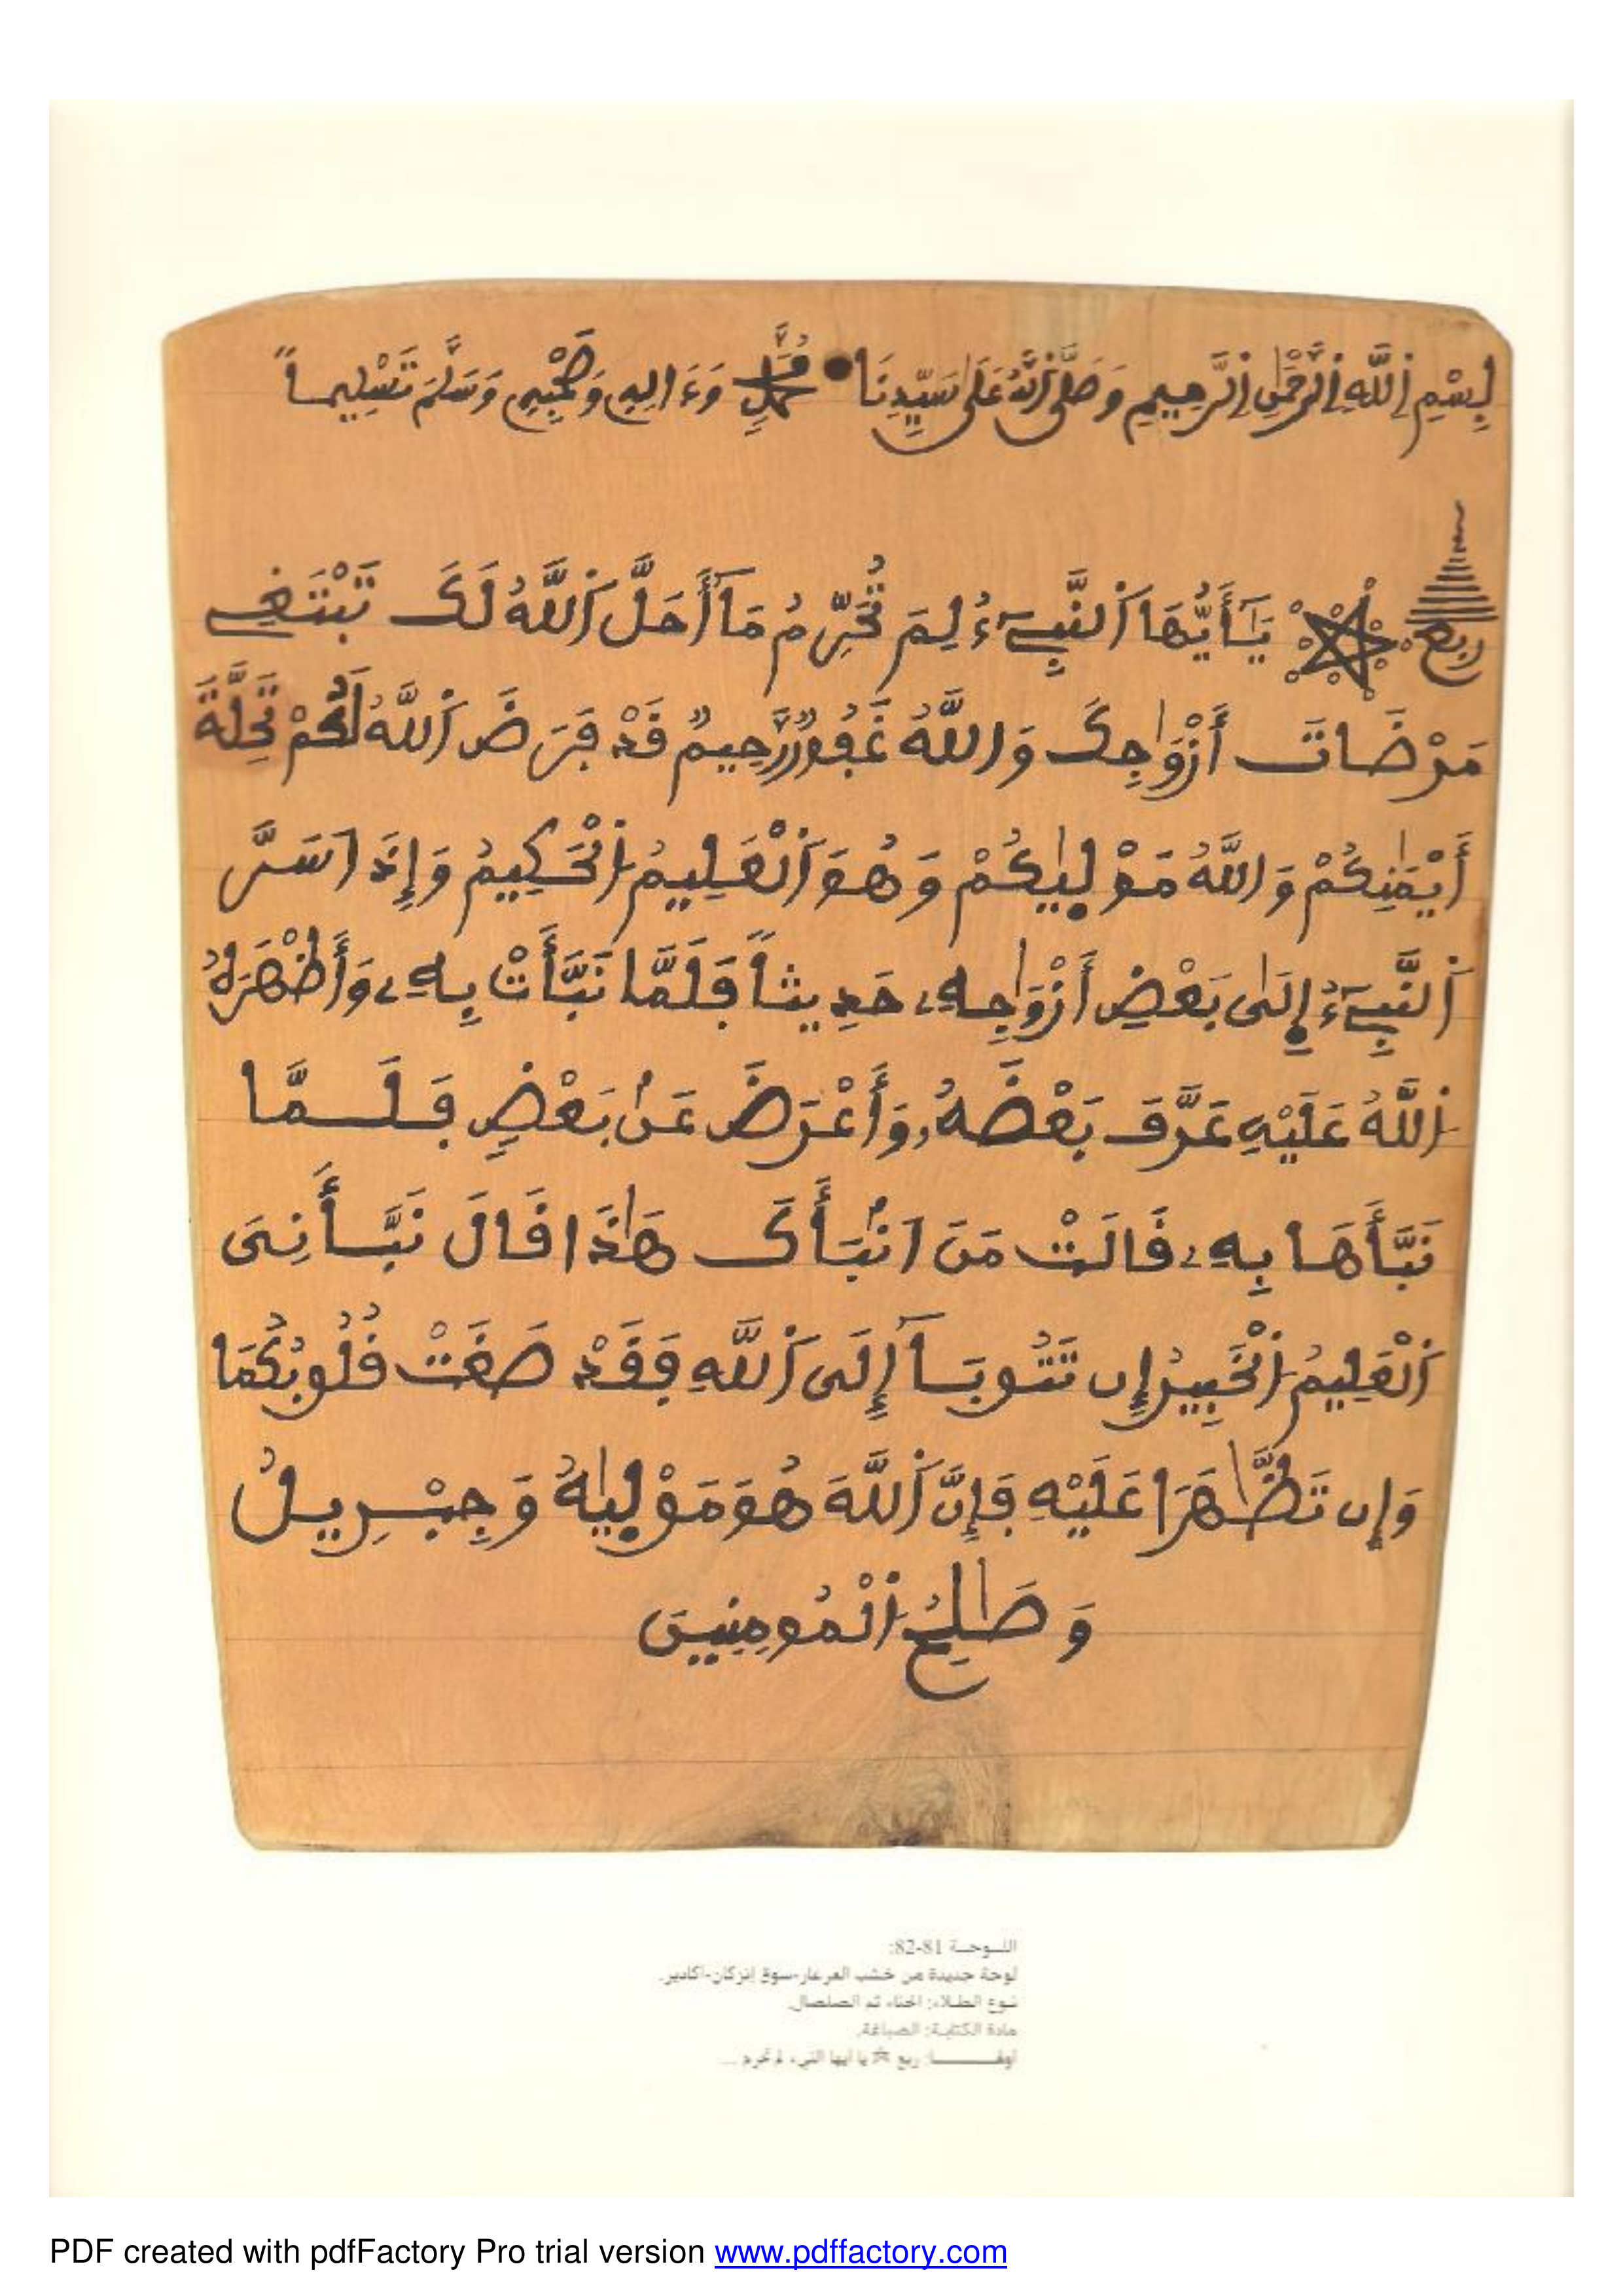 بِسْمِ اِللَّهِ اِلرَّحْمَٰنِ اِلرَّحِيمِ وَصَلَّى اَللَّهُ عَلَىٰ سَيِّدِنَا مُحَمَّدٍ وَءَالِهِ وَصَحْبِهِ وَسَلَّمَ تَسْلِيماً
ربع يَٰٓأَيُّهَا اَلنَّبِيٓءُ لِمَ تُحَرِّمُ مَآ أَحَلَّ اَللَّهُ لَكَ تَبْتَغِے
مَرْضَاتَ أَزْوَٰجِكَ وَاللَّهُ غَفُورٌ رَّحِيمٌ قَدْ فَرَضَ اَللَّهُ لَكُمْ تَحِلَّةَ
أَيْمَٰنِكُمْ وَاللَّهُ مَوْلَيٰكُمْ وَهُوَ اَلْعَلِيمُ اُلْحَكِيمُ وَإِذَ اسَرَّ
اَلنَّبِيٓءُ إِلَىٰ بَعْضِ أَزْوَٰجِهِۦ حَدِيثاً فَلَمَّا نَبَّأَتْ بِهِۦ وَأَظْهَرَهُ
اُللَّهُ عَلَيْهِ عَرَّفَ بَعْضَهُۥ وَأَعْرَضَ عَنۢ بَعْضٍ فَلَمَّا
نَبَّأَهَا بِهِۦ قَالَتْ مَنَ انۢبَأَكَ هَٰذَا قَالَ نَبَّأَنِيَ
اَلْعَلِيمُ اُلْخَبِيرُ إِن تَتُوبَآ إِلَى اَللَّهِ فَقَدْ صَغَتْ قُلُوبُكُمَا
وَإِن تَظَّٰهَرَا عَلَيْهِ فَإِنَّ اَللَّهَ هُوَ مَوْلَيٰهُ وَجِبْرِيلُ
وَصَٰلِحُ اُلْمُومِنِينَ
اللوحة 81-82:
لوحة جديدة من خشب العرعار-سوق إنزكان-أكادير.
نوع الطلاء: الحناء ثم الصلصال.
مادة الكتابة: الصباغة.
أوقـــــا: ربع ☆ يا أيها النبيء لم تحرم ...
PDF created with pdfFactory Pro trial version www.pdffactory.com